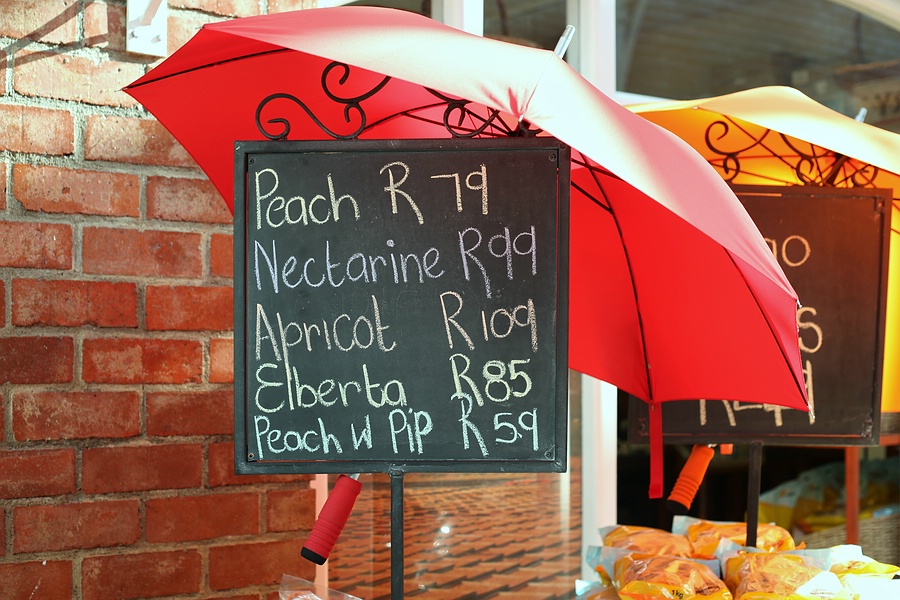 Peach R 79
Nectarine R99
Apricot R109
Elberta R85
Peach W Pip R59
1kg